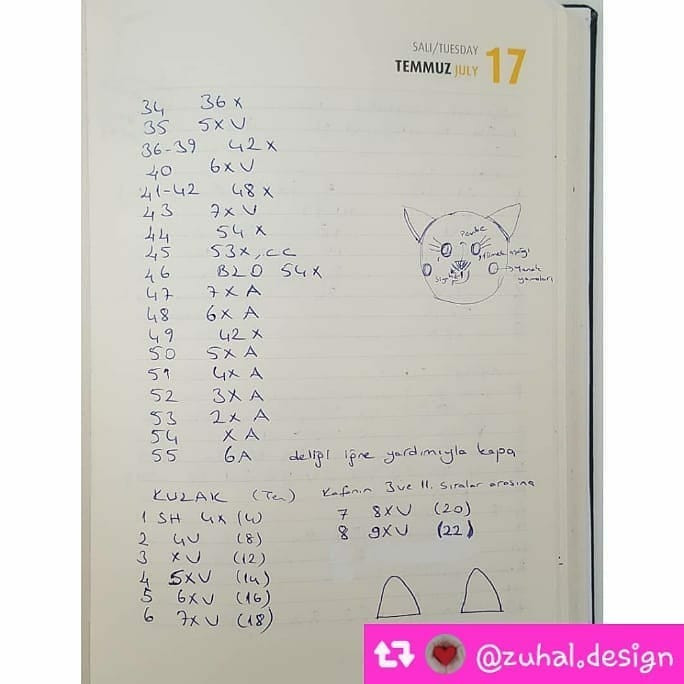 SALI/TUESDAY
TEMMUZ JULY 17
34 36 x
35 5xV
36-39 42 x
40 6xV
41-42 48 x
43 7xV
44 54 x
45 53x, cc
46 BLO 54x
47 7x A
48 6x A
49 42 x
50 5x A
51 4x A
52 3x A
53 2x A
54 x A
55 6A deliği iğne yardımıyla kapa
Pembe
Yanak
yamaları
KULAK (Ten) Kafanın 3 ve 11. sıralar arasına
1 SH 4x (4)
2 4V (8)
3 xV (12)
4 5xV (14)
5 6xV (16)
6 7xV (18)
7 8xV (20)
8 9xV (22)
@zuhal.design